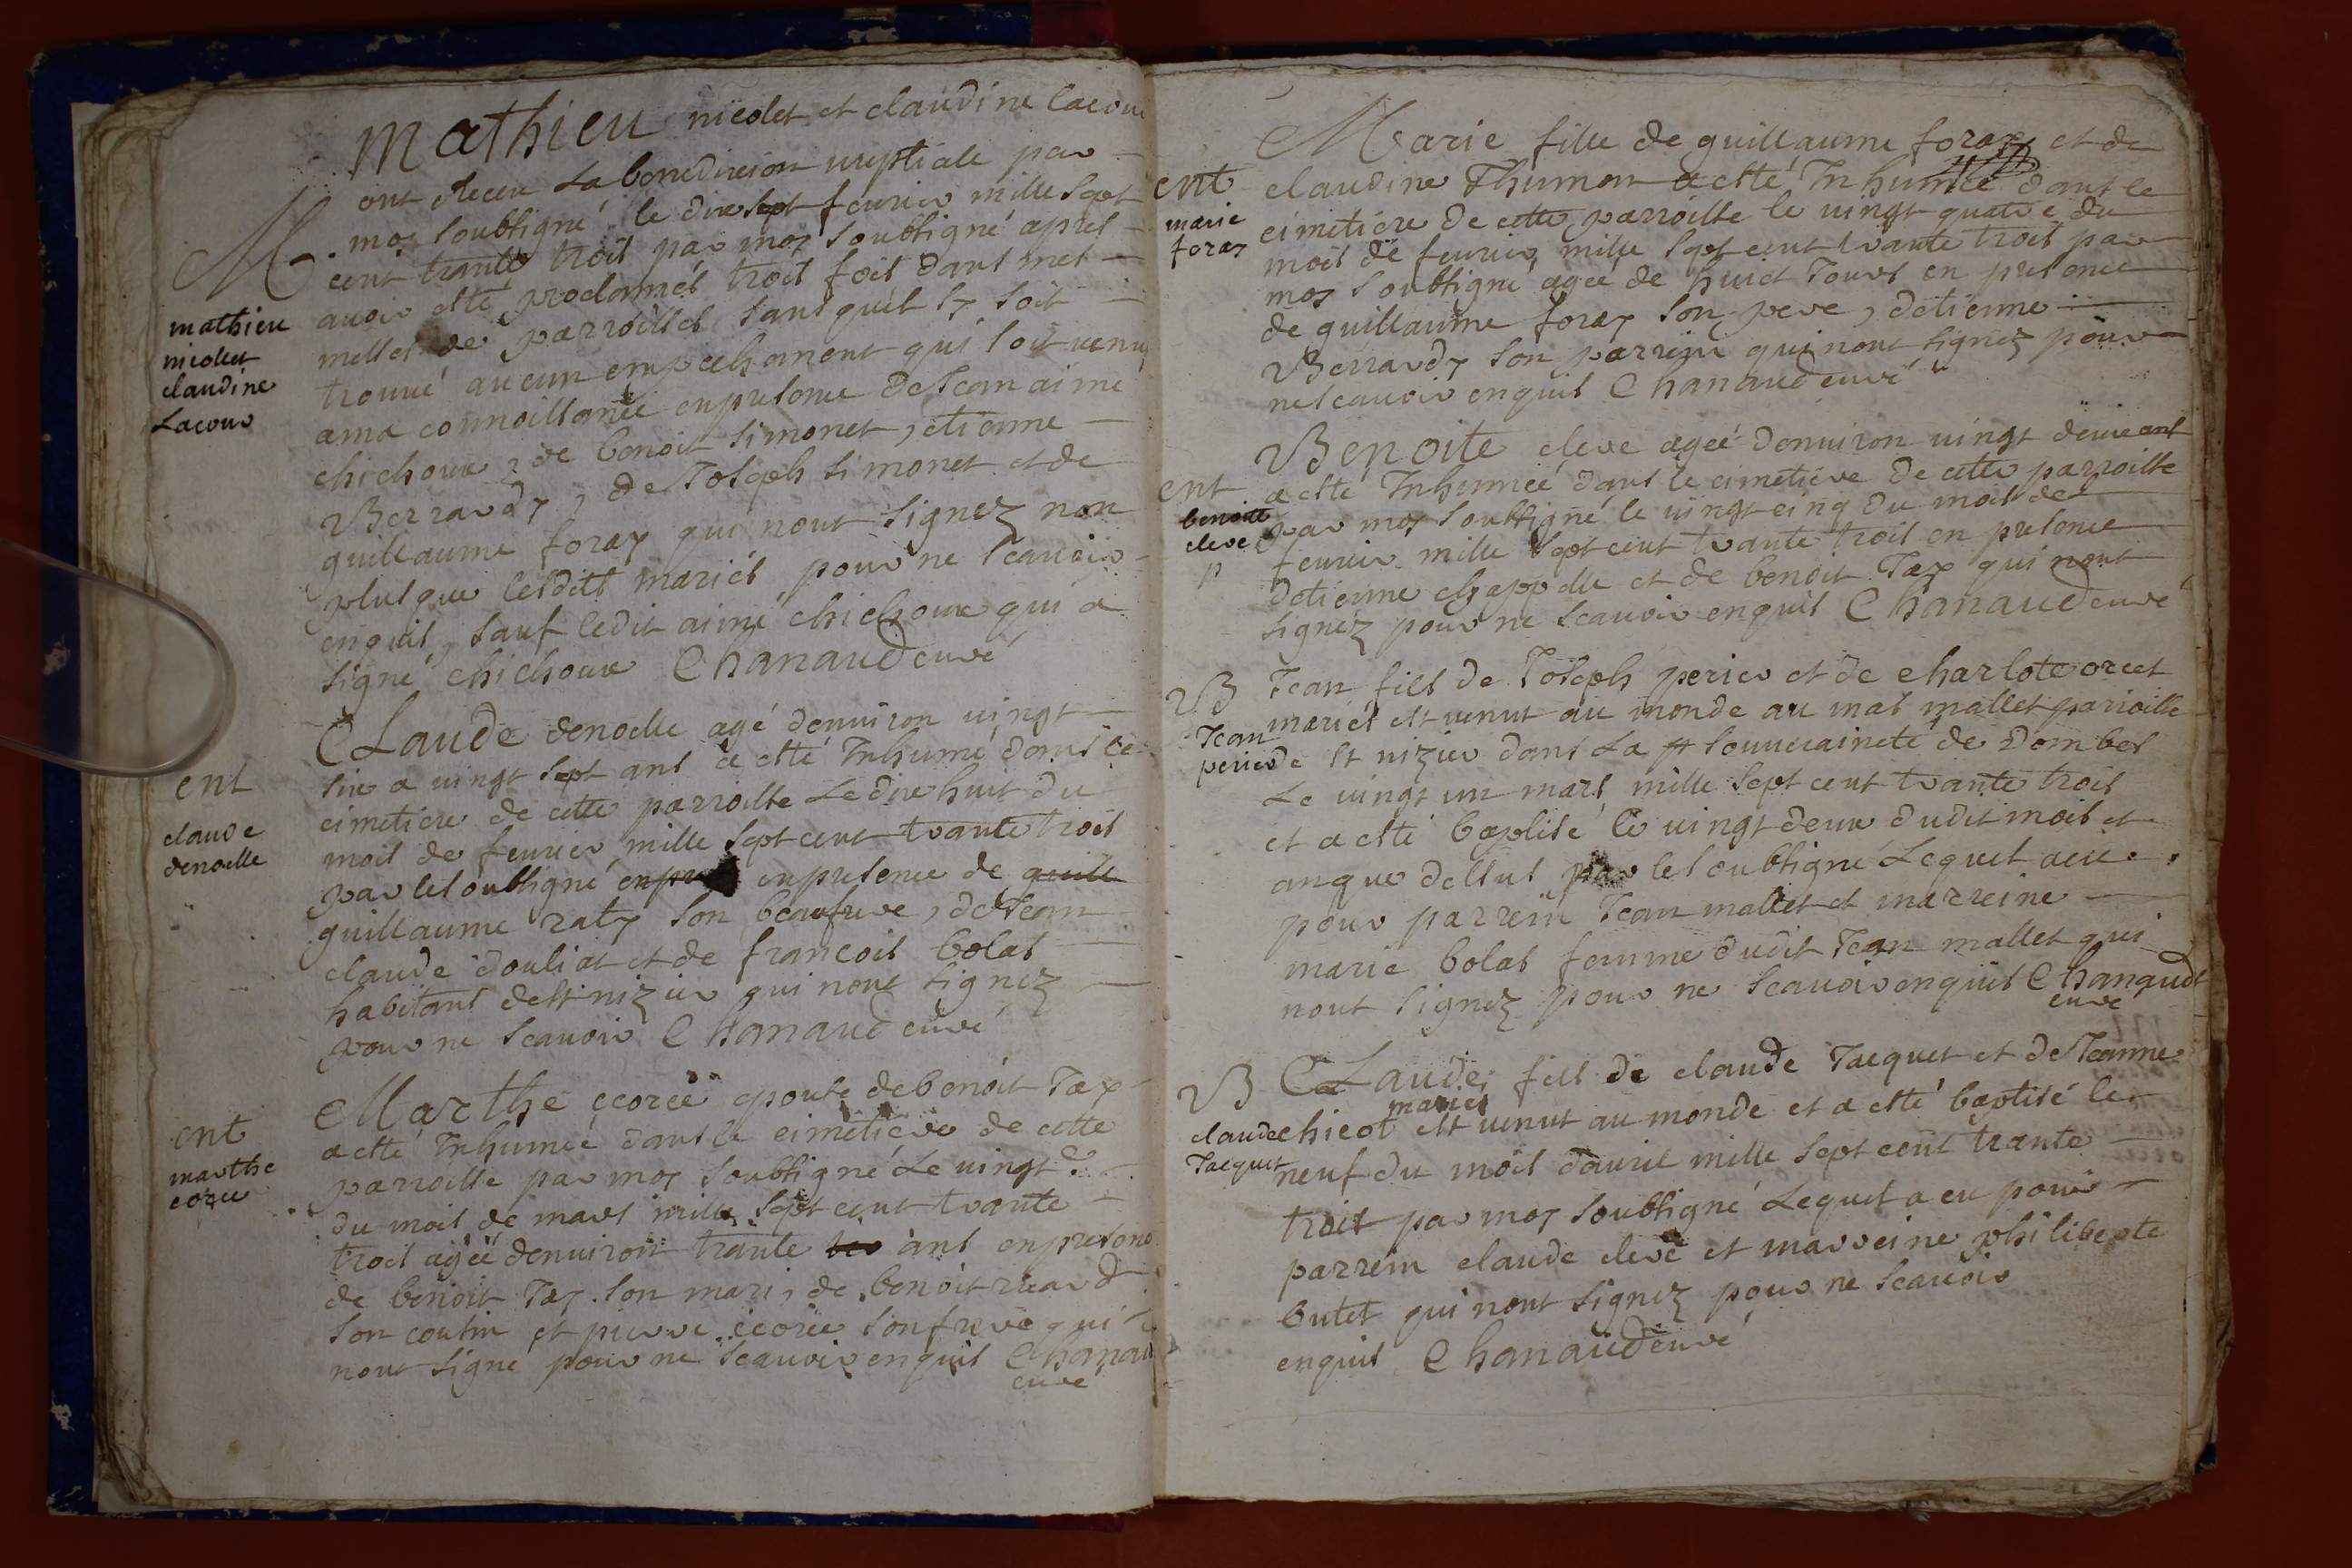 Mathieu nicolet et claudine lacour
ont Receu La benediction nuptiale par
moy soubsigné le dix sept feurier mille sept
M
cent trante trois par moy soubsigné apres
auoir esté proclamés trois fois dans mes
mathieu
nicolet
claudine
Lacour
messes de parroisses sans quil sy soit
trouué aucun empechement qui soit venu
a ma connoissance en presence de Jean aimé
chichoux, de benoit simonet, etienne
Berrardy, de Joseph simonet et de
guillaume foray qui nont signez non
plus que lesdits mariés pour ne scauoir
enquis, sauf ledit aimé chichoux qui a
signé chichoux Chanaud curé
CLaude denoelle agé denuiron vingt
six a vingt sept ans a esté Inhumé dans le
ent
claude
denoelle
cimetiere de cette parroisse Le dix huit du
mois de feurier mille sept cent trante trois
par le soubsigné en presence de guill
guillaume raty son beaufrere, de Jean
claude douliat et de francois bolas
habitans de st nizier qui nont signez
pour ne scauoir Chanaud curé
Marthe ecorcé epouse de benoit Tay
a esté Inhumée dans le cimetiere de cette
ent
marthe
parroisse par moy soubsigné Le vingt
du mois de mars mille sept cent trante
trois agée denuiron trante ans en presence
de benoit Tay son mari, de benoit ricard
son cousin et pierre ecorcé son frere qui
nont signé pour ne scauoir enquis Chanaud
curé
Marie fille de guillaume foray et de
ent
marie
foray
claudine Thumon a esté Inhumée dans le
cimetiere de cette parroisse le vingt quatre du
mois de feurier mille sept cent trante trois par
moy soubsigné agée de huict Jours en presence
de guillaume foray son pere, detienne
Berrardy son parrein qui nont signez pour
ne scauoir enquis Chanaud curé
Benoite cleve agée denuiron vingt deux ans
ent
benoite
cleve
p
a esté Inhumée dans le cimetiere de cette parroisse
par moy soubsigné le vingt cinq du mois de
feurier mille sept cent trante trois en presence
detienne chappelle et de benoit Tay qui nont
signez pour ne scauoir enquis Chanaud curé
B
Jean
perier
Jean fils de Joseph perier et de charlote orcet
mariés est venut au monde au mas mallet parroisse
de st nizier dans La souueraineté de Dombes
Le vingt un mars mille sept cent trante trois
et a esté baptisé le vingt deux dudit mois et
an que dessus par le soubsigné Lequel a eu
pour parrein Jean mallet et marreine
marie bolas femme dudit Jean mallet qui
nont signez pour ne scauoir enquis Chanaudt
curé
B
claude
Jacquet
CLaude fils de claude Jacquet et de Jeanne
mariés
chicot est venut au monde et a esté baptisé le
neuf du mois dauril mille sept cent trante
trois par moy soubsigné Lequel a eu pour
parrein claude cleve et marreine philiberte
butet qui nont signez pour ne scauoir
enquis Chanaud curé